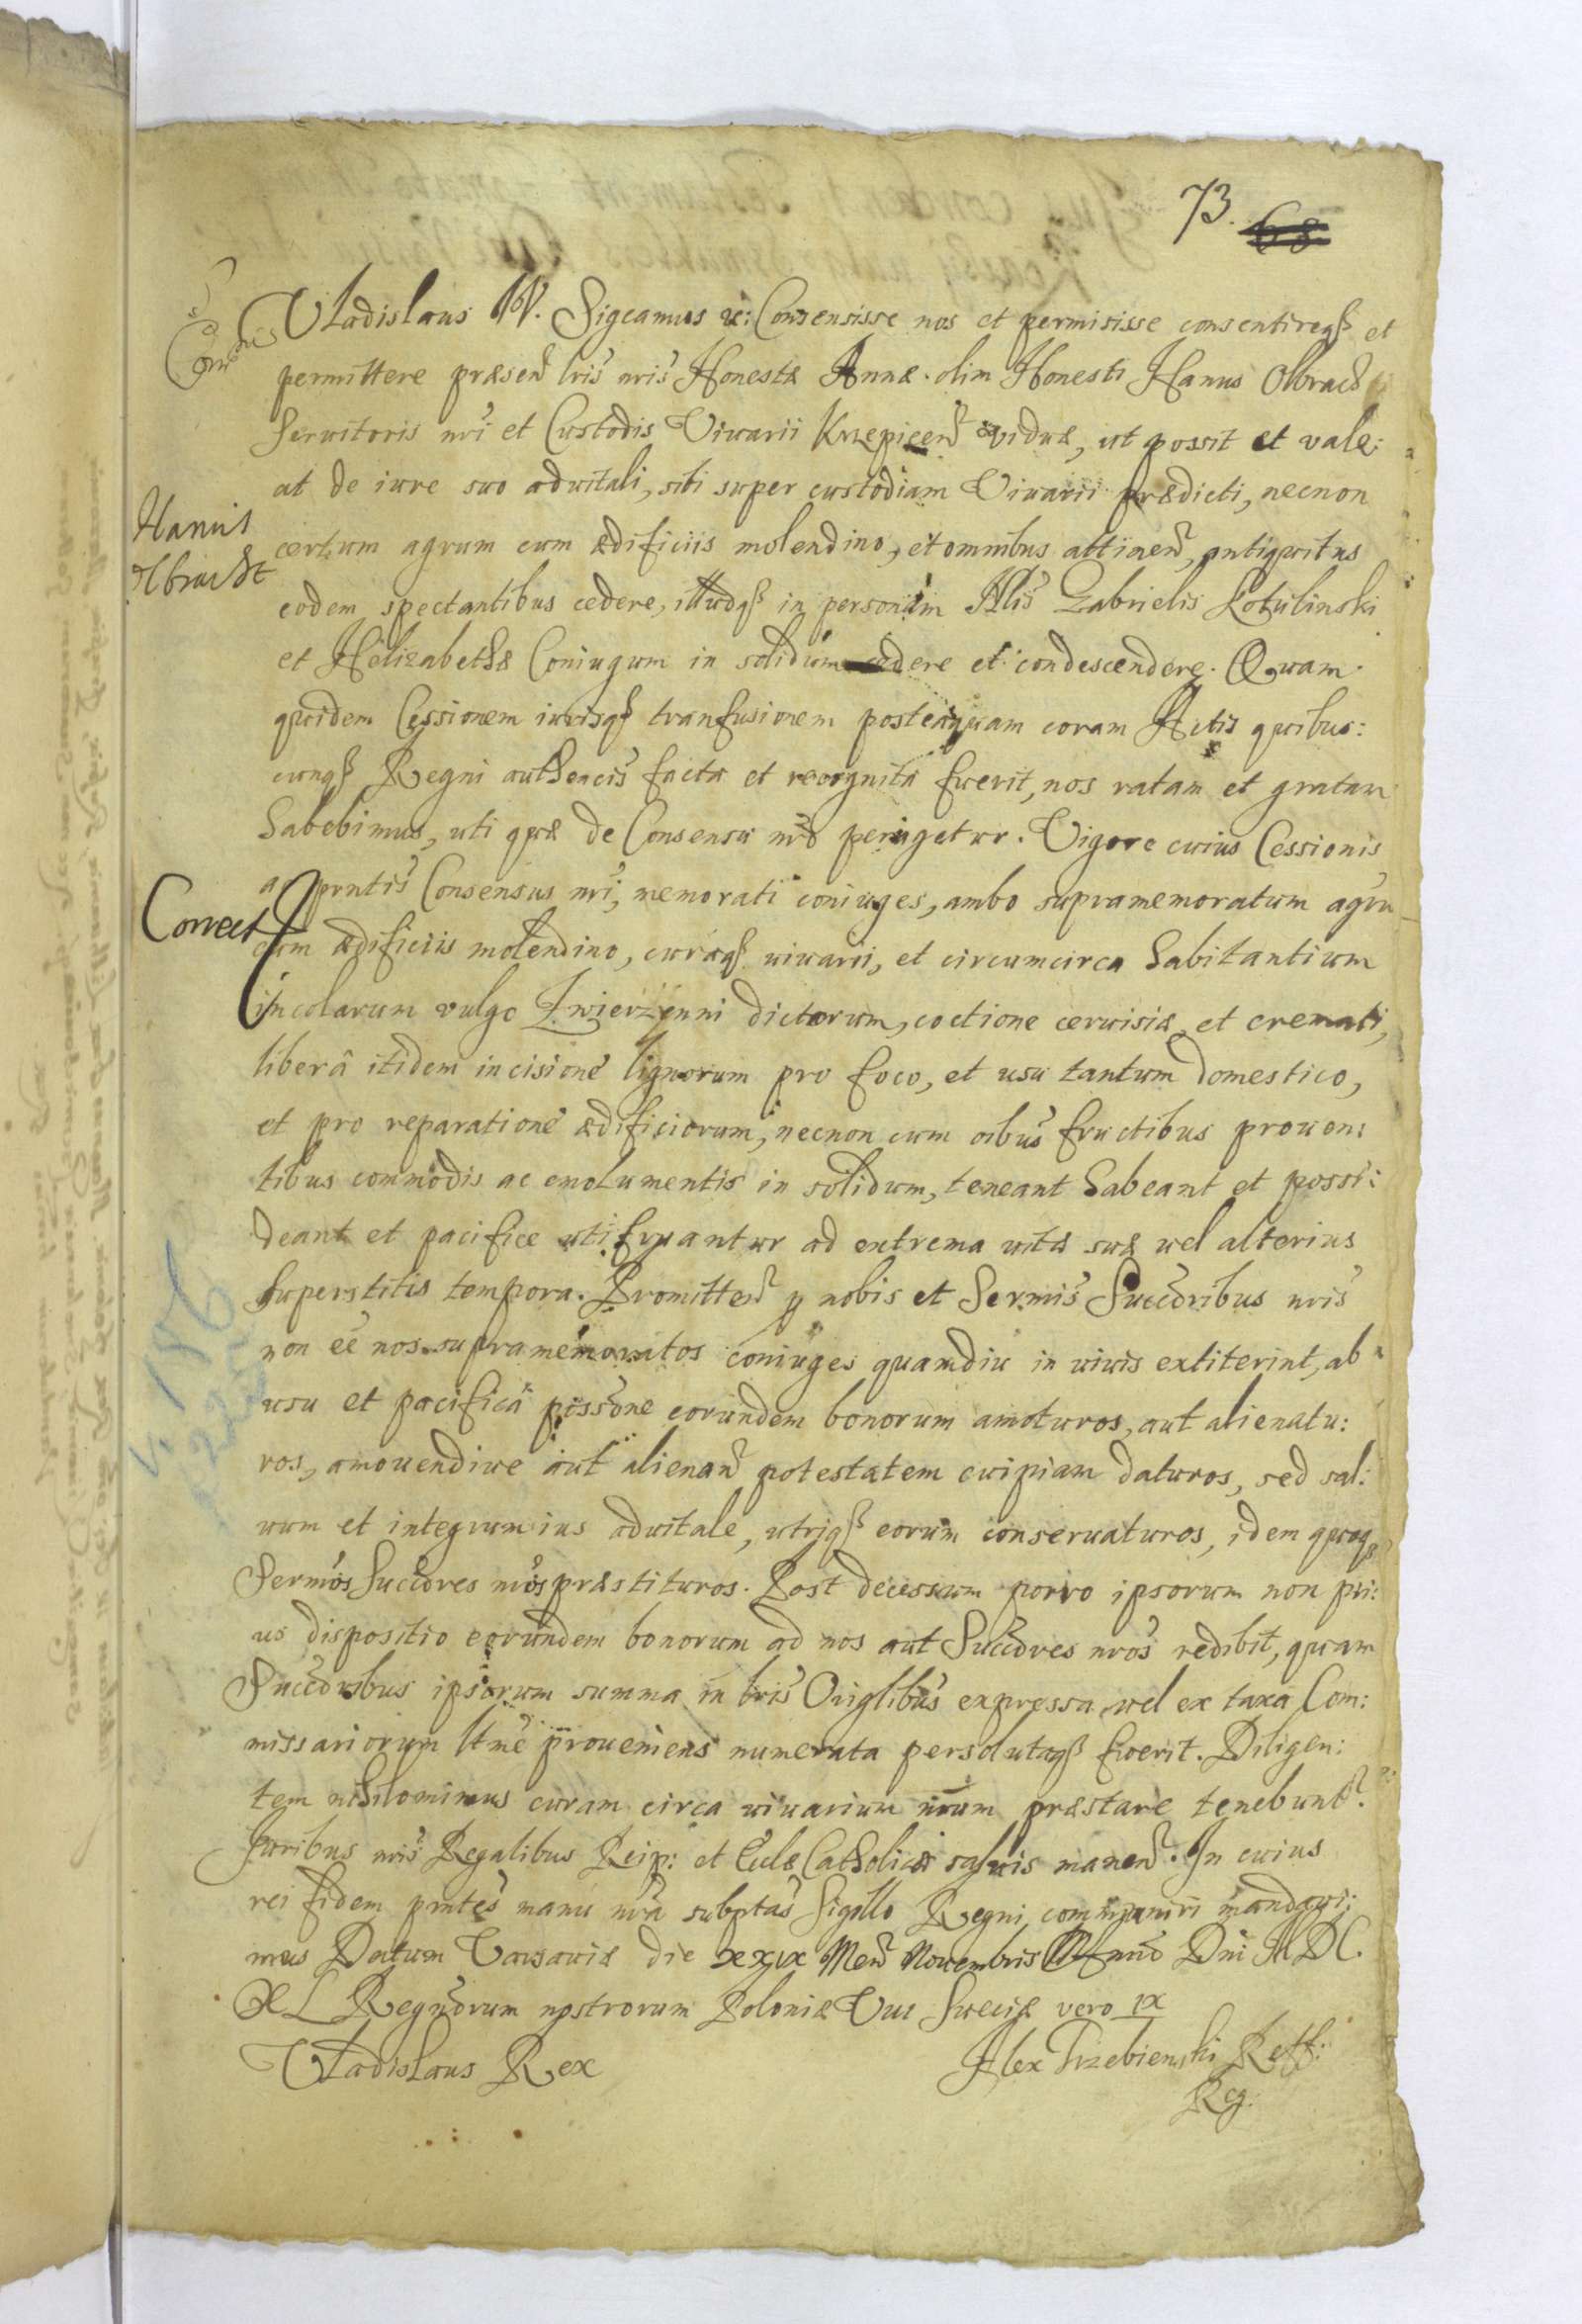 73. 68
Vladislaus IV. Significamus &: Consensisse nos et permisisse consentireq3 et
permittere præsen̄ lris nris Honestæ Annæ olim Honesti Hanus Olbracht
Servitoris nri et Custodis Vivarii Krzepicen̄ viduæ, ut possit et vale:
at de iure suo advitali, sibi super custodiam Vivarii prædicti, necnon
Hanus
Olbracht
certum agrum cum ædificiis molendino, et omnibus attinen̄, antiquitus
eodem spectantibus cedere, illudq3 in personam Nlis Gabrielis Kotulinski
et Helizabethæ Coniugum in solidum cedere et condescendere. Quam
quidem Cessionem iurisq3 tranfusionem posteaquam coram Actis quibus:
cunq3 Regni authencis facta et recognita fuerit, nos ratam et gratam
habebimus, uti quæ de Consensu nro peragetur. Vigore cuius Cessionis
ac prntis Consensus nri, memorati coniuges, ambo supramemoratum agru
Correct
cum ædificiis molendino, curaq3 vivarii, et circumcirca habitantium
incolarum vulgo Zwierzynni dictorum, coctione cervisiæ, et cremati,
liberâ itidem incisione lignorum pro foco, et usu tantum domestico,
et pro reparatione ædificiorum, necnon cum oibus fructibus proven:
tibus commodis ac emolumentis in solidum, teneant habeant et possi:
deant et pacifice utifruantur ad extrema vitæ suæ vel alterius
superstitis tempora. Promitten̄ p nobis et Sermis Succoribus nris
non eé nos supramemoratos coniuges quamdiu in vivis extiterint, ab
usu et pacificâ possone eorundem bonorum amoturos, aut alienatu:
ros, amovendive aut alienan̄ potestatem cuipiam daturos, sed sal:
vum et integrum ius advitale, utriq3 eorum conservaturos, idem quoq3
Sermos Succores nros præstituros. Post decessum porro ipsorum non pri:
us dispositio eorundem bonorum ad nos aut Succores nros redibit, quam
Succoribus ipsorum summa in lris Origlibus expressa vel ex taxa Com:
missariorum ltme proveniens numerata persolutaq3 fuerit. Diligen:
tem nihilominus curam circa vivarium nrum præstare tenebunt.
Iuribus nris Regalibus Reip: et Eclæ Catholicæ salvis manen̄. In cuius
rei fidem prntes manu nra subptas Sigillo Regni communiri mandavi:
mus Datum Varsaviæ die xxix Men̄ Novembris Anno Dni M DC.
XL Regnorum nostrorum Poloniæ VIII Sueciæ vero ix
Vladislaus Rex
Alex Trzebienski Reff:
Reg: